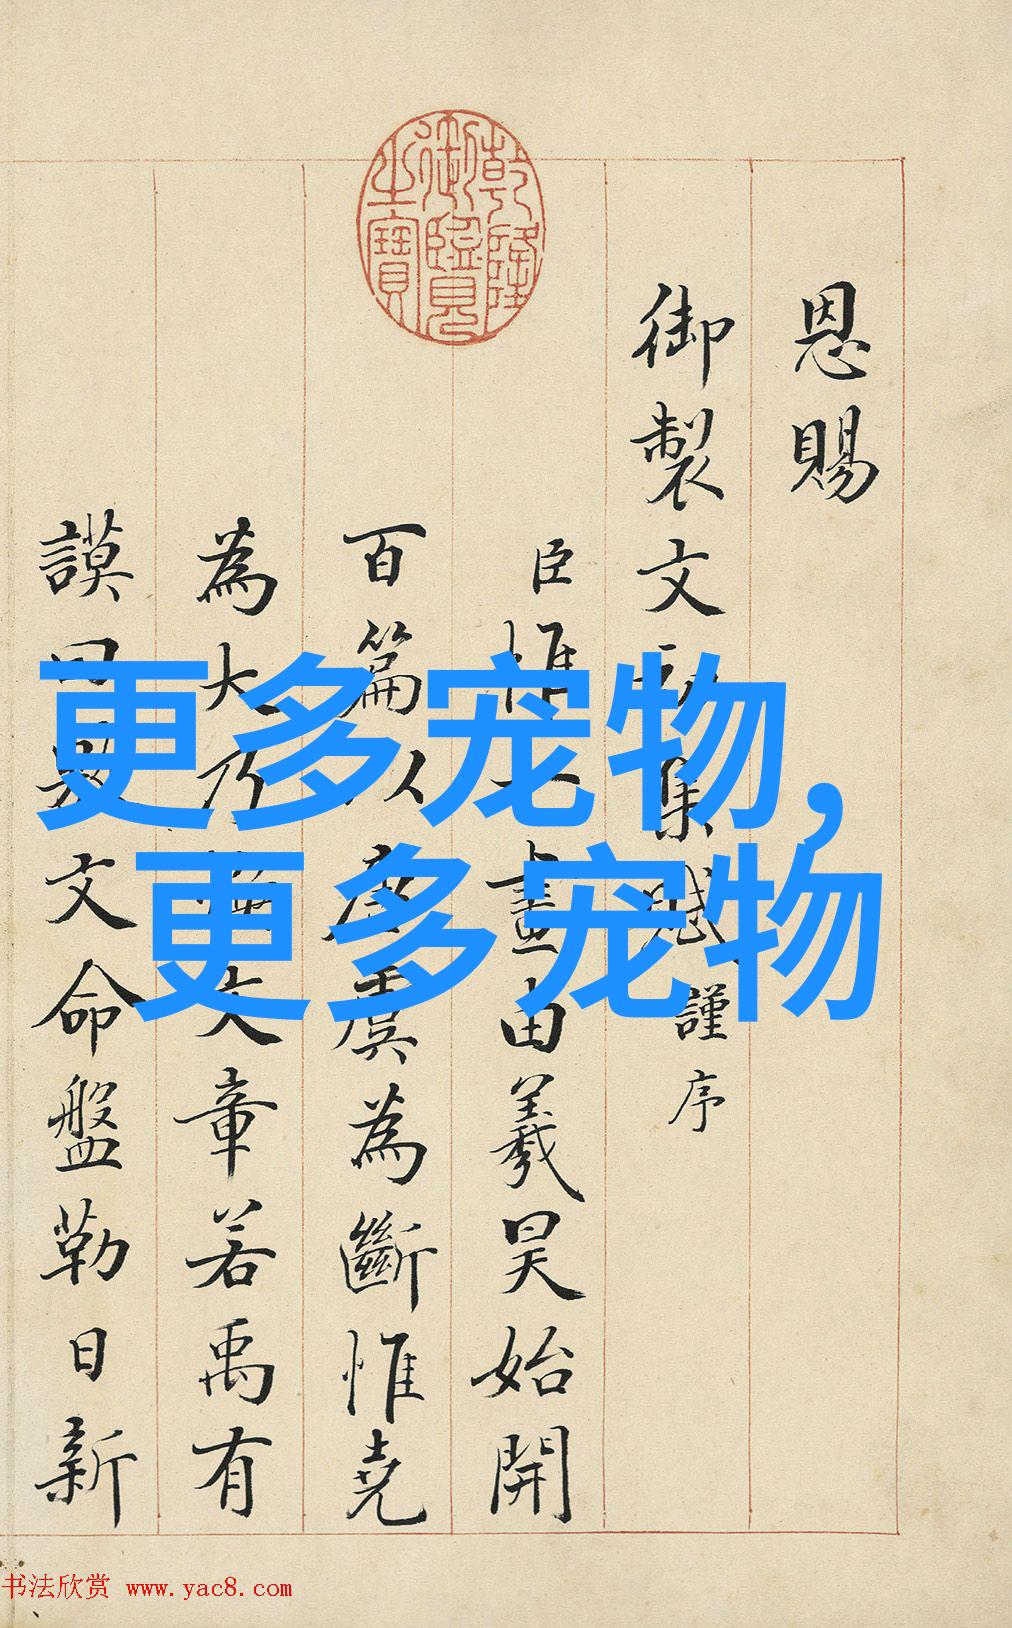 乾隆
御覽
之寶
恩賜
御製文初集賦謹序
臣惟一畫由羲昊始開
百篇以唐虞為斷惟堯
為大乃文章若禹有
謨曰敷文命盤勒日新
更多宠物,
更多宠物
书法欣赏 www.yac8.com